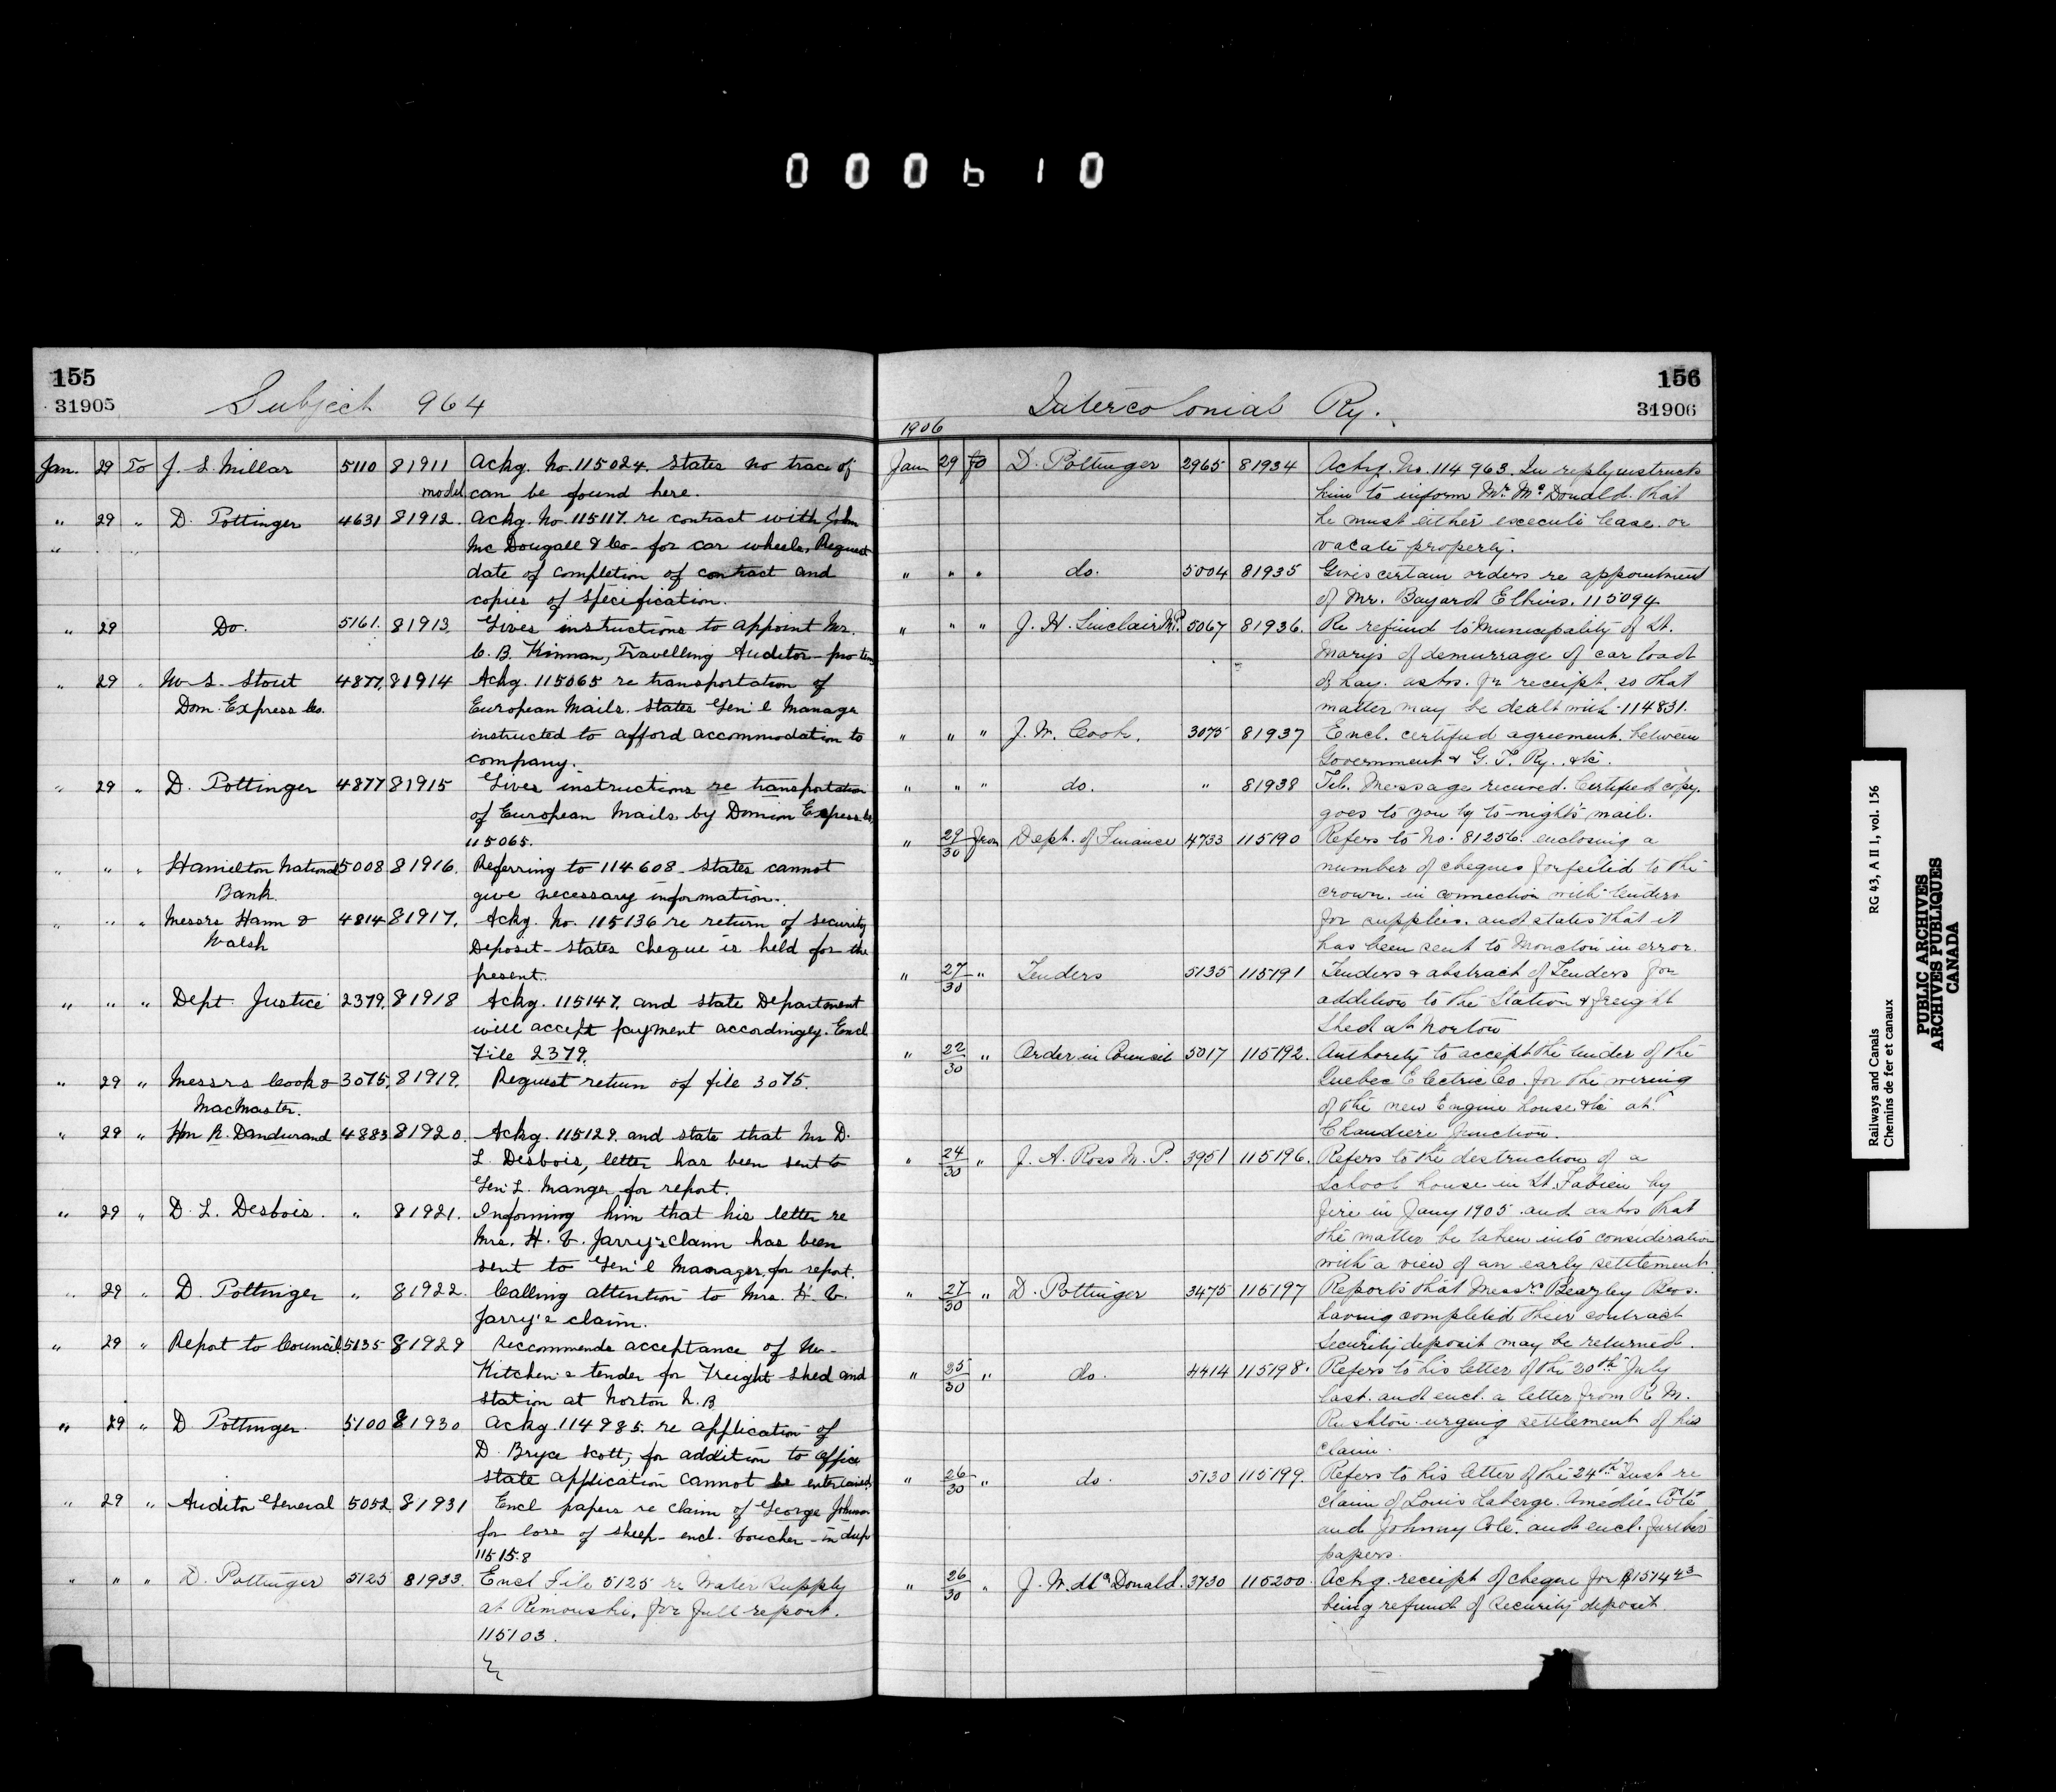 000610
155
31905
Subject 964
Jan. 29 To J. S. Millar 5110 81911 Ackg. No. 115024. States no trace of
model can be found here.
" 29 " D. Pottinger 4631 81912. Ackg. No. 115117. re contract with John
" Mc Dougall & Co- for car wheels. Request
date of completion of contract and
copies of specification.
" 29 Do. 5161. 81913. Gives instructions to appoint Mr.
C. B. Kinnan, Travelling Auditor-pro tem
" 29 " W. S. Stout 4877. 81914 Ackg. 115065 re transportation of
Dom. Express Co. European Mails. States Gen'l Manage
instructed to afford accommodation to
company.
" 29 " D. Pottinger 4877 81915 Gives instructions re transportation
of European Mails by Domion Express Co.
115065.
" " " Hamilton National 5008 81916. Referring to 114608- states cannot
Bank give necessary information.
" " " Messrs Hann & 4814 81917. Ackg. No. 115136 re return of security
Walsh Deposit- states cheque is held for the
present.
" " " Dept. Justice 2379. 81918 Ackg. 115147. and state Department
will accept payment accordingly. Encl
File 2379.
" 29 " Messrs Cook & 3075. 81919. Request return of file 3075.
MacMaster.
" 29 " Hon R. Dandurand 4883 81920. Ackg. 115129. and state that Mr D.
L. Desbois, letter has been sent to
Gen'L. Manger for report.
" 29 " D. L. Desbois. " 81921. Informing him that his letter re
Mrs. H. V. Jarry's claim has been
sent to Gen'l Manager for report.
" 29 " D. Pottinger " 81922. Calling attention to Mrs. H. V.
Jarry's claim.
" 29 " Report to Council 5135 81929 Reccommends acceptance of Mr-
Kitchen's tender for Freight shed and
station at Norton N.B
" 29 " D Pottinger. 5100 81930 Ackg. 114985. re application of
D. Bryce Scott, for addition to office
state application cannot be entertained
" 29 " Auditor General 5052. 81931 Encl papers re claim of George Johnson
for loss of sheep- encl. voucher- in dup
115158
" " " D. Pottinger 5125 81933. Encl File 5125 re Water Supply
at Rimouski, for full report.
115103.
156
31906
Intercolonial Ry.
1906
Jan 29 To D. Pottinger 2965 81934 Ackg. No. 114963. In reply instructs
him to inform Mr. McDonald. that
he must either execute lease or
vacate property.
" " " do. 5004 81935 Gives certain orders re appointment
of Mr. Bayard Elkins. 115094
" " " J. H. Sinclair M.P. 5067 81936. Re refund to Municipality of St.
Marys of demurrage of car load
of hay. asks. for receipt. so that
matter may be dealt with. 114831.
" " " J. W. Cook. 3075 81937 Encl. certified agreement. between
Government & G. T. Ry. &c.
" " " do. " 81938 Tel. Message received. Certified copy.
goes to you by to-night's mail.
" 29/30 From Dept. of Finance 4733 115190 Refers to No. 81256. enclosing a
number of cheques forfeited to the
crown. in connection with tenders
for supplies. and states that it
has been sent to Moncton in error.
" 27/30 " Tenders 5135 115191 Tenders & abstract of Tenders for
addition to the Station & freight
shed at Norton
" 22/30 " Order in Council 5017 115192. Authority to accept the tender of the
Quebec Electric Co. for the wiring
of the new Engine house &c at
Chaudiere Junction.
" 24/30 " J. A. Ross M. P. 3951 115196. Refers to the destruction of a
School house in St. Fabien by
fire in Jany 1905 and asks that
the matter be taken into consideration
with a view of an early settlement.
" 27/30 " D. Pottinger 3475 115197 Reports that Messrs Beazley Bros.
having completed their contract
security deposit may be returned.
" 25/30 " do. 4414 115198. Refers to his letter of the 20th July
last. and encl. a letter from R. M.
Rushton urging settlement of his
claim.
" 26/30 " do. 5130 115199. Refers to his letter of the 24th Inst re
claim of Louis Laberge. Amédée Coté
and Johnny Coté. and encl. further
papers.
" 26/30 " J. W. McDonald. 3730 115200. Ackg. receipt of cheque for $1574 43
being refund of security deposit.
Railways and Canals RG 43, A II 1, vol. 156
Chemins de fer et canaux
PUBLIC ARCHIVES
ARCHIVES PUBLIQUES
CANADA